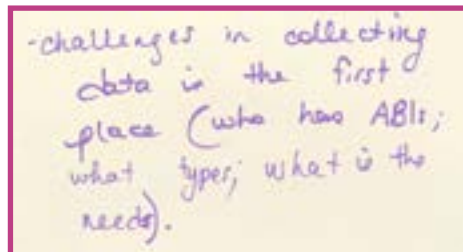 -challenges in collecting
data in the first
place (who has ABIs;
what types; what is the
needs).